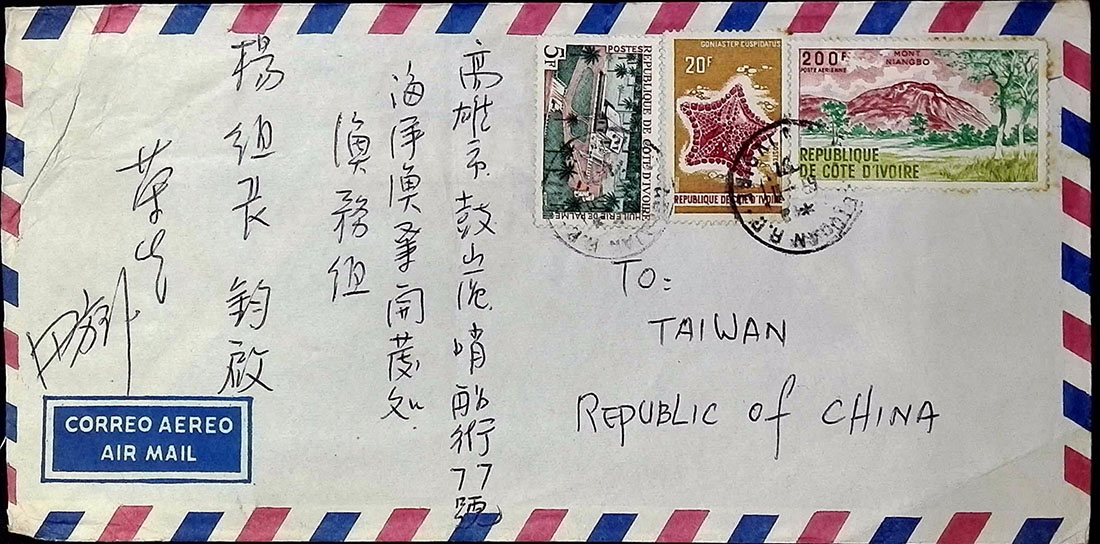 5F
POSTES
REPUBLIQUE DE COTE D'IVOIRE
HUILERIE DE PALME
GONIASTER CUSPIDATUS
20F
REPUBLIQUE DE CÔTE D'IVOIRE
200F
POSTE AERIENNE
MONT
NIANGBO
REPUBLIQUE
DE CÔTE D'IVOIRE
TO:
TAIWAN
REPUBLIC of CHINA
高雄市鼓山區哨船街77號
海洋漁業開發処
漁務組
楊組長鈞啟
CORREO AEREO
AIR MAIL